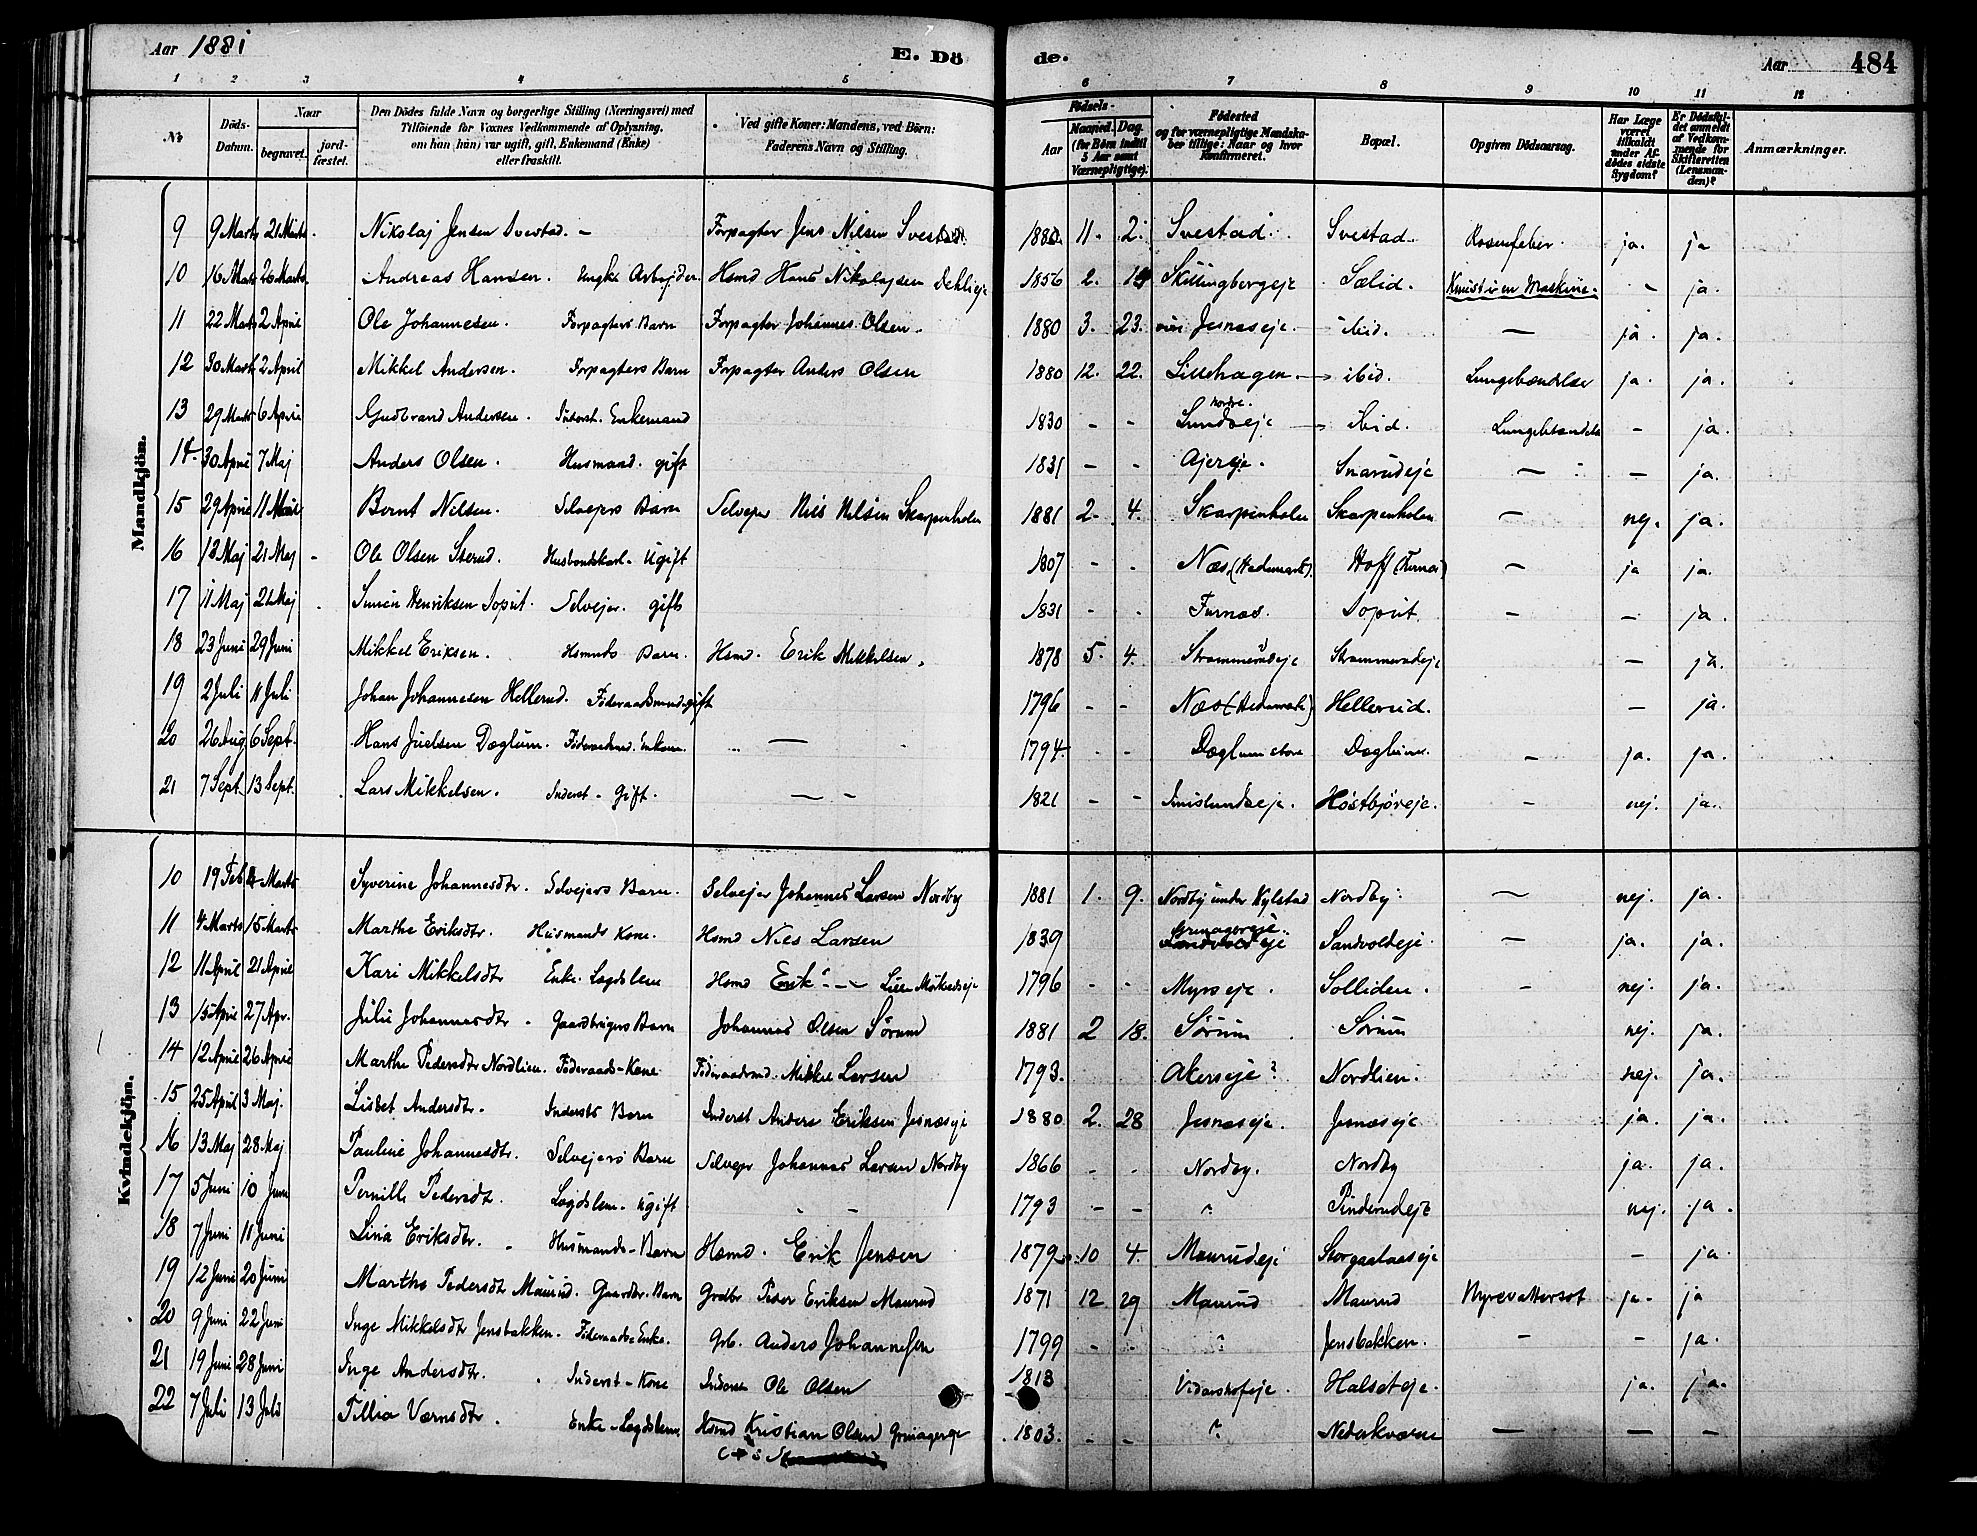 Aar 1881 E. Dö de. Aar 484
1 2 3 4 5 6 7 8 9 10 11 12
No Döds-Datum. Naar begravet. jord-fæstet. Den Dödes fulde Navn og borgerlige Stilling (Næringsvei) med Tilföiende for Voxnes Vedkommende af Oplysning, om han (hun) var ugift, gift, Enkemand (Enke) eller fraskilt. Ved gifte Koner: Mandens, ved Börn: Faderens Navn og Stilling. Födsels- Aar Maaned. Dag. (for Börn indtil 5 Aar samt Værnepligtige). Födested og for værnepligtige Mandskaber tillige: Naar og hvor Konfirmeret. Bopæl. Opgiven Dödsaarsag. Har Læge været tilkaldt under Afdödes sidste Sygdom? Er Dödsfaldet anmeldt af Vedkommende for Skifteretten (Lensmanden)? Anmærkninger.
Mandkjön.
9 9 Marts 21 Marts Nikolaj Jensen Svestad. - Forpagter Jens Nilsen Svestad 1880 11. 2. Svestad Svestad. Rosenfeber. ja. ja
10 16 Marts 26 Marts. Andreas Hansen. Ungk. Arbejder. Hsmd Hans Nikolajsen Dehlieje 1856 2. 19 Skillingbergeje Sælid. Knust i en Maskine. - ja.
11 22 Marts 2 April Ole Johannesen. Forpagters Barn Forpagter Johannes Olsen. 1880 3. 23. Jesnæseje ibid. — ja. ja.
12 30 Marts 2 April Mikkel Andersen. Forpagters Barn Forpagter Anders Olsen 1880 12. 22. Lillehagen ibid. Lungebetændelse ja. ja.
13 29 Marts 6 April Gudbrand Andersen. Inderst. Enkemand 1830 - - Nordre. Lundseje ibid. Lungebetændelse - ja.
14 30 April 7 Maj Anders Olsen. Husmand. gift 1831 - - Ajerseje. Snarudeje — - ja.
15 29 April 11 Bernt Nilsen. Selvejers Barn Selvejer Nils Nilsen Skarpenholen 1881 2. 4. Skarpenholen Skarpenholen — nej. ja.
16 13 Maj 21 Maj - Ole Olsen Husbondskarl. Ugift 1807 - - Næs (Hedemark). Hoff (Furnæs) — ja ja.
17 11 Maj 21 Maj Simen Henriksen Soprit. Selvejer. gift 1831 - - Furnæs. Soprit. — - ja.
18 23 Juni 29 Juni Mikkel Eriksen. Hsmnds Barn. Hsmd. Erik Mikkelsen. 1878 5. 4. Strommerudeje Strommerudeje - ja.
19 2 Juli 11 Juli Johan Johannesen Hellerud. Föderaadsmand gift 1796 - - Næs (Hedemark) Hellerud. - ja.
20 26 Aug 6 Sept. Hans Juelsen Doglum. Föderaadsmd. Enkem. — 1794 - - Doglum store Doglum. - ja. ja.
21 7 Sept. 13 Sept. Lars Mikkelsen. Inderst - Gift. — - 1821 - - Høstbjøreje. - nej. ja.
Kvindekjön.
10 19 Feb. 4 Marts Syverine Johannesdtr. Selvejers Barn. Selvejer Johannes Larsen Nordby 1881 1. 9. Nordby under Kylstad Nordby. — nej. ja.
11 4 Marts 15 Marts Marthe Eriksdtr. Husmands Kone. Hsmd Nils Larsen 1839 Grinagereje. Sandvoldeje Sandvoldeje — ja. ja.
12 11 April 21 April Kari Mikkelsdtr Enke. Lægdslem Hsmd Erik - - 1796 - - Myrseje. Solliden. - nej. ja.
13 15 April 27 Apr. Julie Johannesdtr. Gaardbrugers Barn Johannes Olsen Sørum 1881 2 18. Sørum Sørum nej. ja.
14 12 April 26 April Marthe Pedersdtr Nordlien. Föderaads-Kone Föderaadsmd. Mikkel Larsen 1793. Akerseje? Nordlien. nej. ja.
15 25 April 3 Maj. Lisbet Andersdtr. Inderst. Barn Inderst Anders Eriksen Jesnæseje 1880 2. 28 Jesnæseje. Jesnæseje ja. ja.
16 13 Maj 28 Maj Pauline Johannesdtr. Selvejers Barn Selvejer Johannes Larsen Nordby 1866 - - Nordby. Nordby ja. ja.
17 5 Juni 10 Juni Pernille Pedersdtr. Lægdslem. Ugift - - 1793 - - ? Pinderudeje nej. ja.
18 7 Juni 11 Juni Lina Eriksdtr. - Husmands-Barn Hsmd. Erik Jensen 1879. 10 4. Maurudeje Storgaardseje - ja.
19 12 Juni 20 Juni Marthe Pedersdtr Maurud. Gaardbr. Barn Grdbr Peder Eriksen Maurud 1871 12 29 Maurud Maurud Nyrevattersot ja. ja
20 9 Juni 22 Juni Inge Mikkelsdtr Jensbakken. Föderaads Enke. Grb. Anders Johannesen 1799 - - ? Jensbakken. - - ja.
21 19 Juni 28 Juni Inge Andersdtr. Inderst-Kone Inderst Ole Olsen 1813 Vidarshofeje. Halseteje. ja. ja.
22 7 Juli 13 Juli Tillia Værnsdtr. Enke-Lægdslem. Hsmd Kristian Olsen Grinagereje 1803. - - ? Nederkværne — — —